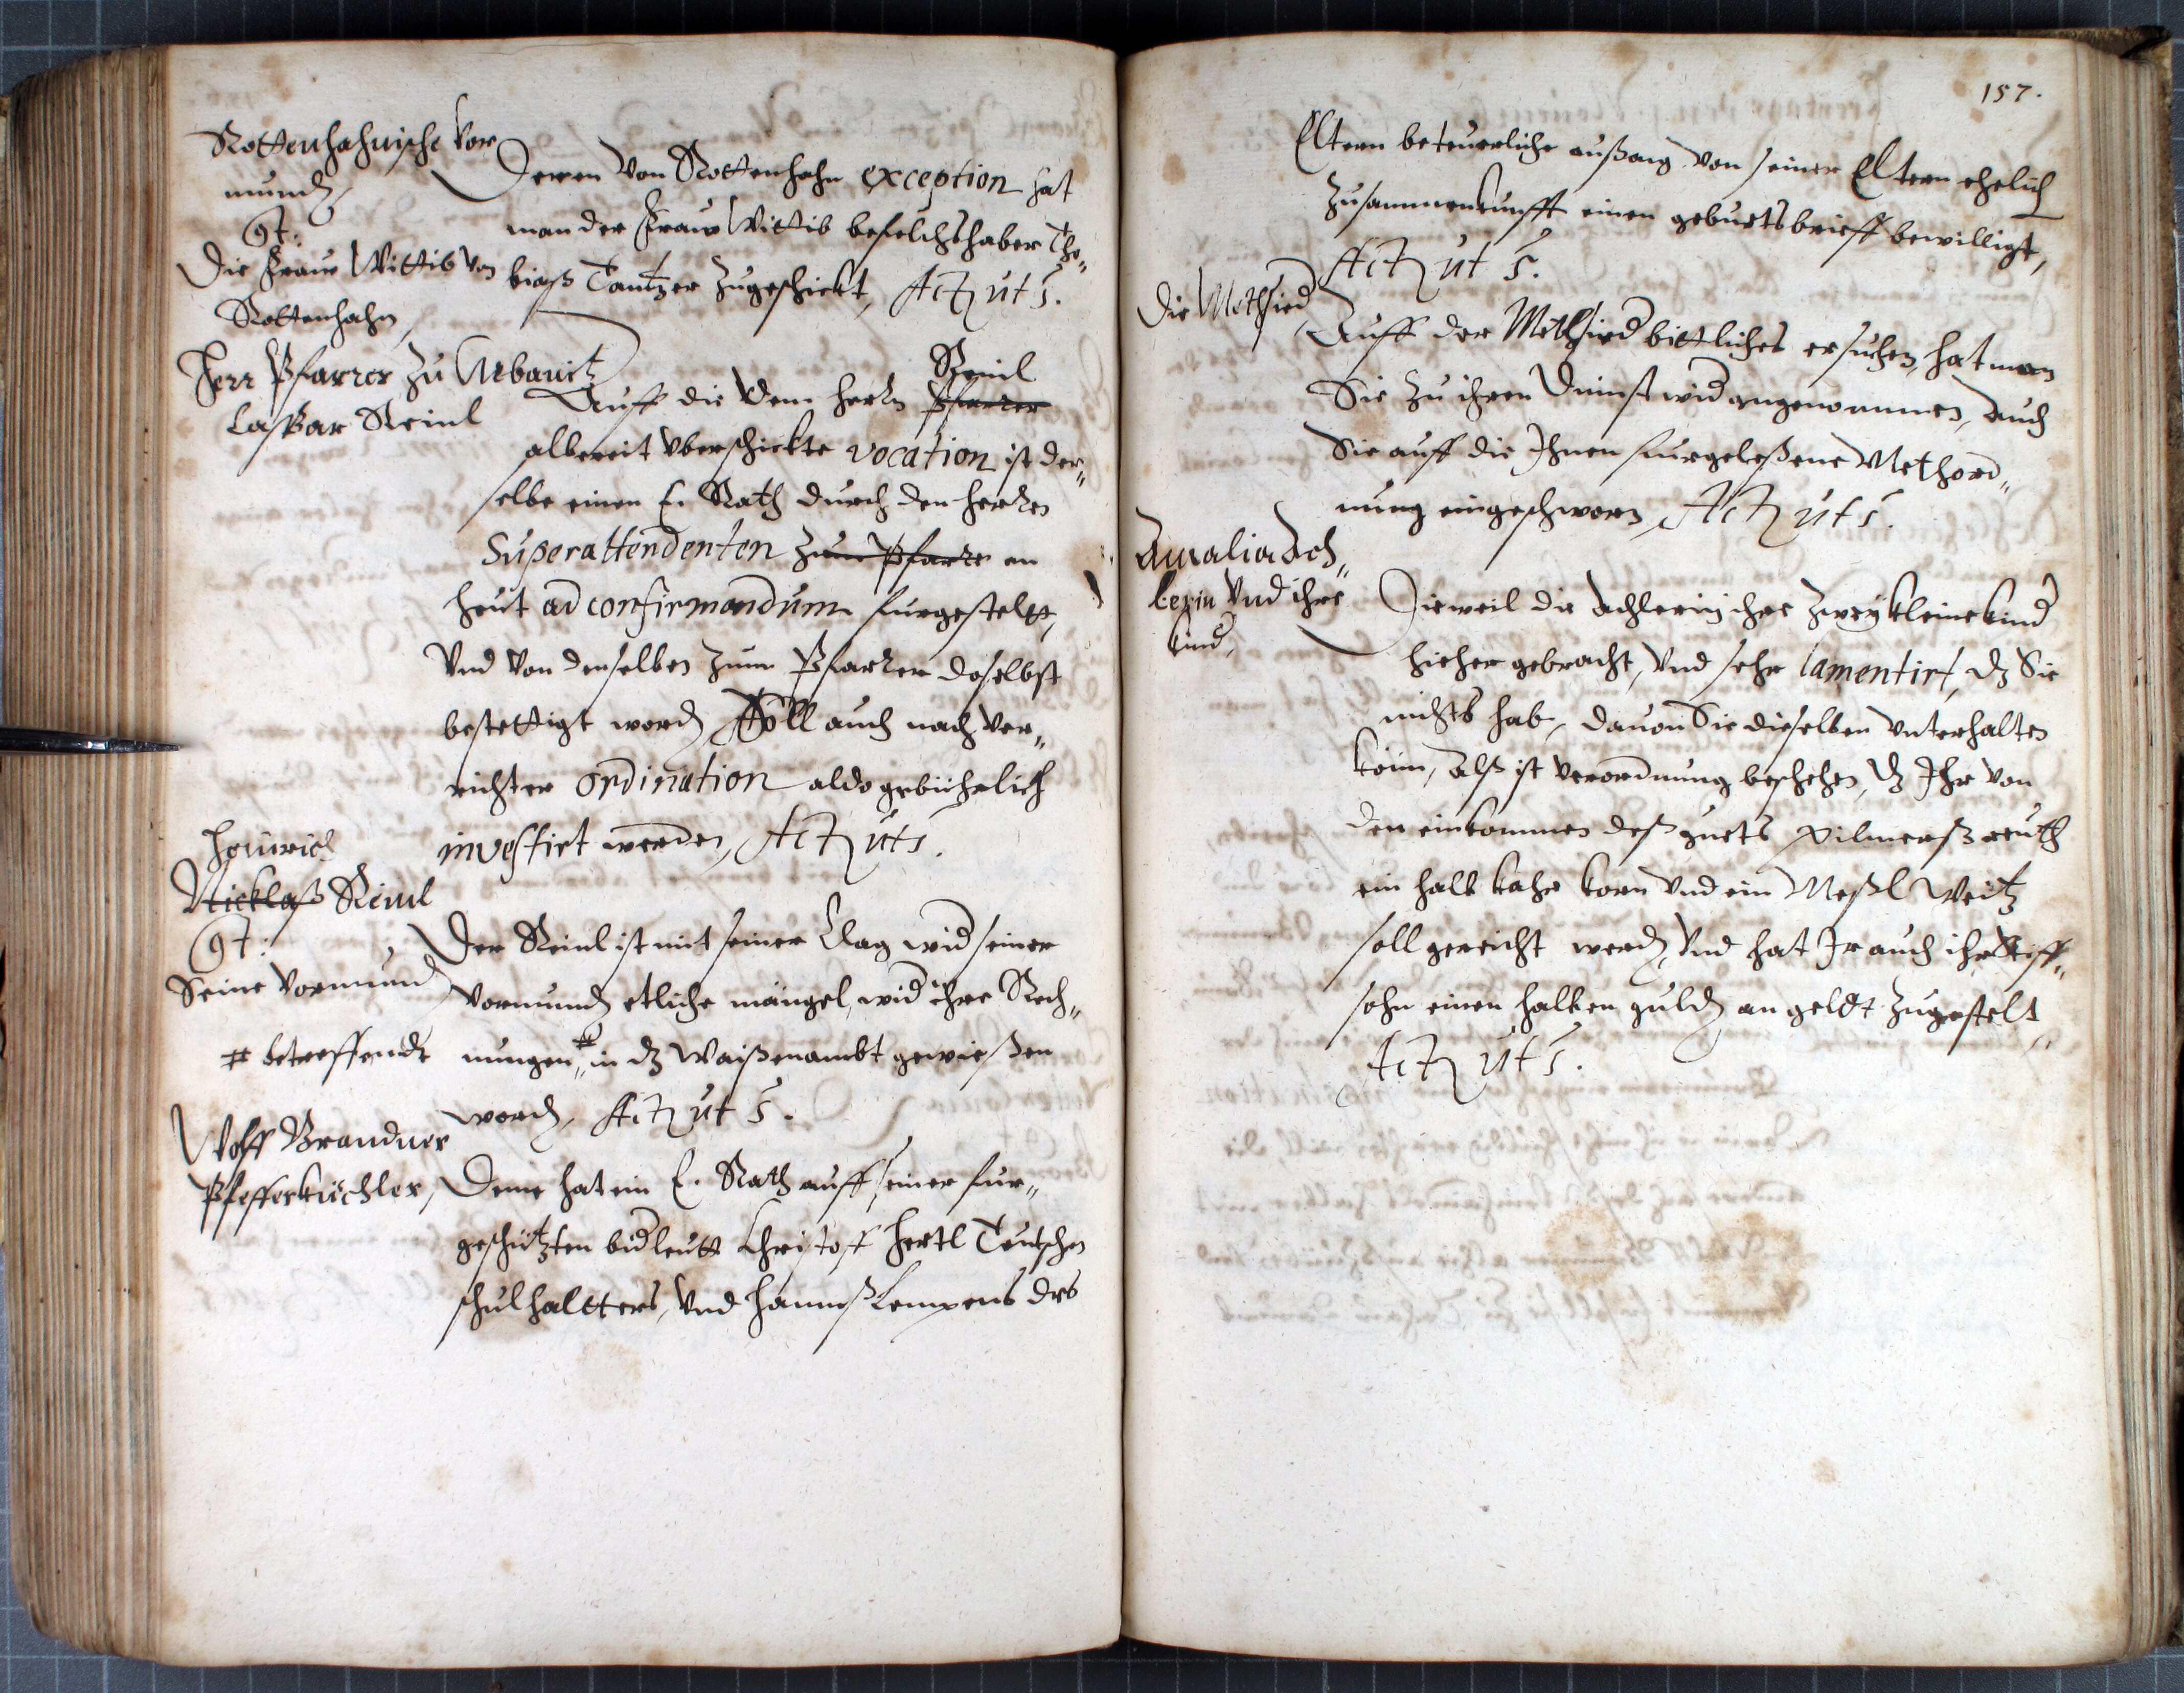 Rottenhahnische Vor
mund,
gt:
Die Fraw Wittib von
Rottenhahn,
Deren von Rottenhahn exception hat
man der Fraw Wittib befelchshaber Tho„
biaß Tantzer zugeschickt, Act ut s.
Herr Pfarrer zu Albanitz
Caspar Reinl
Reinl
Auff die dem herrn Pfarrer
albereit vberschickte vocation ist der„
selbe einen E. Rath durch den herrn
Superattendenten zum Pfarrer an
heut ad confirmandum furgestelt,
Vnd von denselben zum Pfarrer doselbst
bestettigt word, Soll auch nach ver„
richter ordination aldo gebührlich
investirt werden, Act ut s.
Heinrich
Nicklaß Reinl
gt:
Seine Vormund
Der Reinl ist mit seiner Clag wid seiner
Vormund etliche mängel, wid ihre Rech„
# betreffendt
nungen # in dz Waißenambt gewießen
word, Act ut s.
Wolff Brandner
Pfefferküchler,
Deme hat ein E. Rath auff seiner fur„
geschützten bidleutt Christoff Hertl Teutschen
schulhaltters, Vnd Hannß Lempens des
157.
Eltern beteuerliche außag von seiner Eltern ehelich
Zusammenkunfft einen geburtsbrieff bewilligt,
Act ut s.
Die Methsied
Auff der Methsied bittliches ersuchen, hat man
Sie zu ihren Dinst wid angenommen, Auch
Sie auff die Ihnen furgeleßene Methord„
nung eingeschworn, Act ut s.
Amalia Ach„
lerin Vnd ihre
kind,
Dieweil die Achlerin ihre zwey kleine kind
hieher gebracht, Vnd sehr lamentirt, dz Sie
nichts hab, dauon Sie dieselben Vnterhalten
könn, Alß ist verordnung beschehen, dz Ihr von
den einkommen deß guets Pilmerßreuth
ein halb kahr korn Vnd ein Meßl Weitz
soll gereicht werd, Vnd hat Ir auch ihr Stiff„
sohn einen halben guld, an geldt zugestelt
Act ut s.